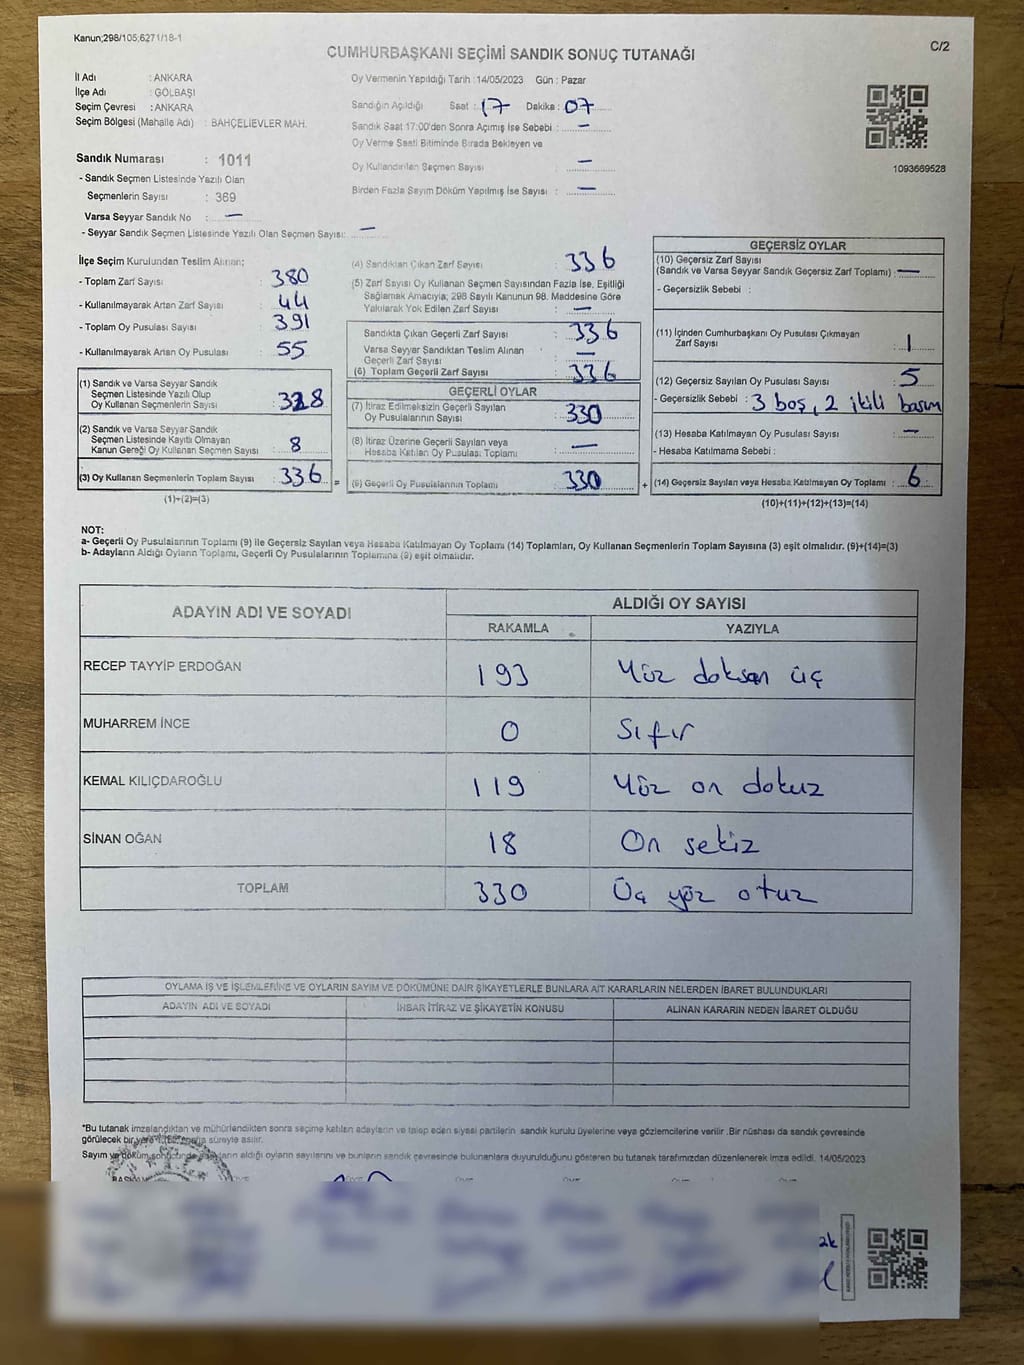 Kanun;298/105;6271/18-1
C/2
CUMHURBAŞKANI SEÇİMİ SANDIK SONUÇ TUTANAĞI
İl Adı : ANKARA
İlçe Adı : GÖLBAŞI
Seçim Çevresi : ANKARA
Seçim Bölgesi (Mahalle Adı) : BAHÇELİEVLER MAH.
Sandık Numarası : 1011
- Sandık Seçmen Listesinde Yazılı Olan
Seçmenlerin Sayısı : 369
Varsa Seyyar Sandık No : —
- Seyyar Sandık Seçmen Listesinde Yazılı Olan Seçmen Sayısı: —
Oy Vermenin Yapıldığı Tarih : 14/05/2023 Gün : Pazar
Sandığın Açıldığı Saat : 17 Dakika : 07
Sandık Saat 17:00'den Sonra Açımış İse Sebebi : —
Oy Verme Saati Bitiminde Sırada Bekleyen ve
Oy Kullandırılan Seçmen Sayısı : —
Birden Fazla Sayım Döküm Yapılmış İse Sayısı : —
1093669528
İlçe Seçim Kurulundan Teslim Alınan;
- Toplam Zarf Sayısı : 380
- Kullanılmayarak Artan Zarf Sayısı : 44
- Toplam Oy Pusulası Sayısı : 391
- Kullanılmayarak Artan Oy Pusulası : 55
(1) Sandık ve Varsa Seyyar Sandık
Seçmen Listesinde Yazılı Olup
Oy Kullanan Seçmenlerin Sayısı : 328
(2) Sandık ve Varsa Seyyar Sandık
Seçmen Listesinde Kayıtlı Olmayan
Kanun Gereği Oy Kullanan Seçmen Sayısı : 8
(3) Oy Kullanan Seçmenlerin Toplam Sayısı : 336 =
(1)+(2)=(3)
(4) Sandıktan Çıkan Zarf Sayısı : 336
(5) Zarf Sayısı Oy Kullanan Seçmen Sayısından Fazla İse, Eşitliği
Sağlamak Amacıyla; 298 Sayılı Kanunun 98. Maddesine Göre
Yakılarak Yok Edilen Zarf Sayısı : —
Sandıkta Çıkan Geçerli Zarf Sayısı : 336
Varsa Seyyar Sandıktan Teslim Alınan
Geçerli Zarf Sayısı : —
(6) Toplam Geçerli Zarf Sayısı : 336
GEÇERLİ OYLAR
(7) İtiraz Edilmeksizin Geçerli Sayılan
Oy Pusulalarının Sayısı : 330
(8) İtiraz Üzerine Geçerli Sayılan veya
Hesaba Katılan Oy Pusulası Toplamı : —
(9) Geçerli Oy Pusulalarının Toplamı : 330 +
GEÇERSİZ OYLAR
(10) Geçersiz Zarf Sayısı
(Sandık ve Varsa Seyyar Sandık Geçersiz Zarf Toplamı) : —
- Geçersizlik Sebebi :
(11) İçinden Cumhurbaşkanı Oy Pusulası Çıkmayan
Zarf Sayısı : 1
(12) Geçersiz Sayılan Oy Pusulası Sayısı : 5
- Geçersizlik Sebebi : 3 boş, 2 ikili basım
(13) Hesaba Katılmayan Oy Pusulası Sayısı : —
- Hesaba Katılmama Sebebi :
(14) Geçersiz Sayılan veya Hesaba Katılmayan Oy Toplamı : 6
(10)+(11)+(12)+(13)=(14)
NOT:
a- Geçerli Oy Pusulalarının Toplamı (9) ile Geçersiz Sayılan veya Hesaba Katılmayan Oy Toplamı (14) Toplamları, Oy Kullanan Seçmenlerin Toplam Sayısına (3) eşit olmalıdır. (9)+(14)=(3)
b- Adayların Aldığı Oyların Toplamı, Geçerli Oy Pusulalarının Toplamına (9) eşit olmalıdır.
ADAYIN ADI VE SOYADI
ALDIĞI OY SAYISI
RAKAMLA YAZIYLA
RECEP TAYYİP ERDOĞAN 193 Yüz doksan üç
MUHARREM İNCE 0 Sıfır
KEMAL KILIÇDAROĞLU 119 Yüz on dokuz
SİNAN OĞAN 18 On sekiz
TOPLAM 330 Üç yüz otuz
OYLAMA İŞ VE İŞLEMLERİNE VE OYLARIN SAYIM VE DÖKÜMÜNE DAİR ŞİKAYETLERLE BUNLARA AİT KARARLARIN NELERDEN İBARET BULUNDUKLARI
ADAYIN ADI VE SOYADI İHBAR İTİRAZ VE ŞİKAYETİN KONUSU ALINAN KARARIN NEDEN İBARET OLDUĞU
*Bu tutanak imzalandıktan ve mühürlendikten sonra seçime katılan adayların ve talep eden siyasi partilerin sandık kurulu üyelerine veya gözlemcilerine verilir. Bir nüshası da sandık çevresinde
görülecek bir yere süreyle asılır.
Sayım ve döküm sonucunda adayların aldığı oyların sayılarını ve bunların sandık çevresinde bulunanlara duyurulduğunu gösteren bu tutanak tarafımızdan düzenlenerek imza edildi. 14/05/2023